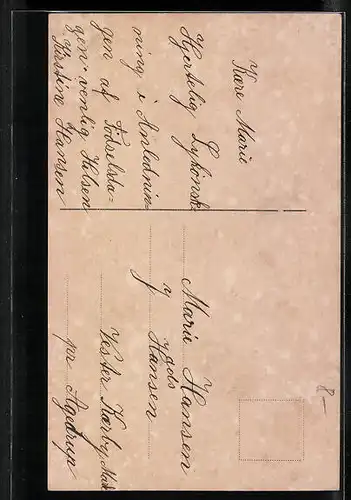 Kære Marie
Hjertelig Lykønsk
ning i Anlednin
gen af Fødselsda-
gen. venlig Hilsen
Kirstine Hansen
Marie Hansen
Hansen
Vester Kærby Mark
pr Agedrup
8-